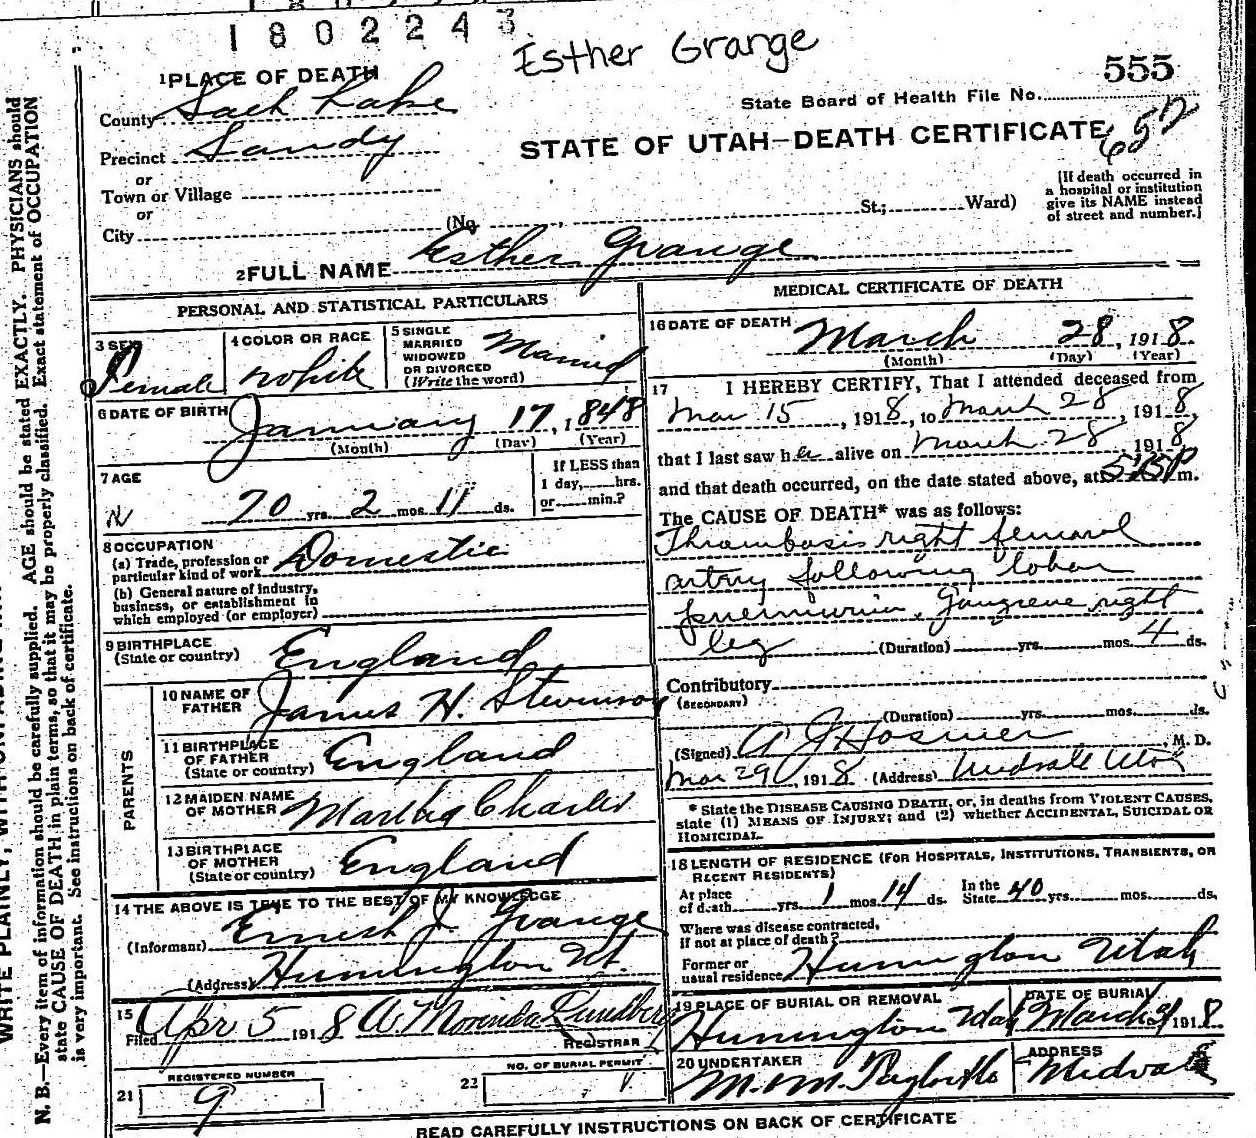 1802243
Esther Grange
555
1 PLACE OF DEATH
State Board of Health File No.
County Salt Lake
STATE OF UTAH—DEATH CERTIFICATE
652
Precinct Sandy
or
Town or Village
or
City (No. St.; Ward)
[If death occurred in
a hospital or institution
give its NAME instead
of street and number.]
2 FULL NAME Esther Grange
PERSONAL AND STATISTICAL PARTICULARS
3 SEX
Female
4 COLOR OR RACE
white
5 SINGLE
MARRIED
WIDOWED
OR DIVORCED
(Write the word)
Married
6 DATE OF BIRTH
January 17, 1848
(Month) (Day) (Year)
7 AGE
70 yrs. 2 mos. 11 ds.
If LESS than
1 day, hrs.
or min.?
8 OCCUPATION
(a) Trade, profession or
particular kind of work Domestic
(b) General nature of industry,
business, or establishment in
which employed (or employer)
9 BIRTHPLACE
(State or country) England
PARENTS
10 NAME OF
FATHER James H. Stevenson
11 BIRTHPLACE
OF FATHER
(State or country) England
12 MAIDEN NAME
OF MOTHER Martha Charles
13 BIRTHPLACE
OF MOTHER
(State or country) England
14 THE ABOVE IS TRUE TO THE BEST OF MY KNOWLEDGE
(Informant) Ernest J. Grange
(Address) Huntington Ut.
15
Filed Apr 5 1918 A. Morinda Lundberg
REGISTRAR
21
REGISTERED NUMBER
9
22
NO. OF BURIAL PERMIT
MEDICAL CERTIFICATE OF DEATH
16 DATE OF DEATH
March 28, 1918.
(Month) (Day) (Year)
17 I HEREBY CERTIFY, That I attended deceased from
Mar 15, 1918, to March 28, 1918,
that I last saw her alive on March 28 1918
and that death occurred, on the date stated above, at 5:15 P m.
The CAUSE OF DEATH* was as follows:
Thrombosis right femoral
artery following lobar
pneumonia. Gangrene right
leg (Duration) yrs. mos. 4 ds.
Contributory
(SECONDARY)
(Duration) yrs. mos. ds.
(Signed) A J Hosmer, M. D.
Mar 29, 1918 (Address) Midvale Utah
* State the DISEASE CAUSING DEATH, or, in deaths from VIOLENT CAUSES,
state (1) MEANS OF INJURY; and (2) whether ACCIDENTAL, SUICIDAL OR
HOMICIDAL.
18 LENGTH OF RESIDENCE (FOR HOSPITALS, INSTITUTIONS, TRANSIENTS, OR
RECENT RESIDENTS)
At place
of death yrs. 1 mos. 14 ds.
In the
State 40 yrs. mos. ds.
Where was disease contracted,
if not at place of death?
Former or
usual residence Huntington Utah
19 PLACE OF BURIAL OR REMOVAL
Huntington Utah
DATE OF BURIAL
March 31 1918
20 UNDERTAKER
ADDRESS
Midvale
READ CAREFULLY INSTRUCTIONS ON BACK OF CERTIFICATE
N. B.—Every item of information should be carefully supplied. AGE should be stated EXACTLY. PHYSICIANS should
state CAUSE OF DEATH in plain terms, so that it may be properly classified. Exact statement of OCCUPATION
is very important. See instructions on back of certificate.